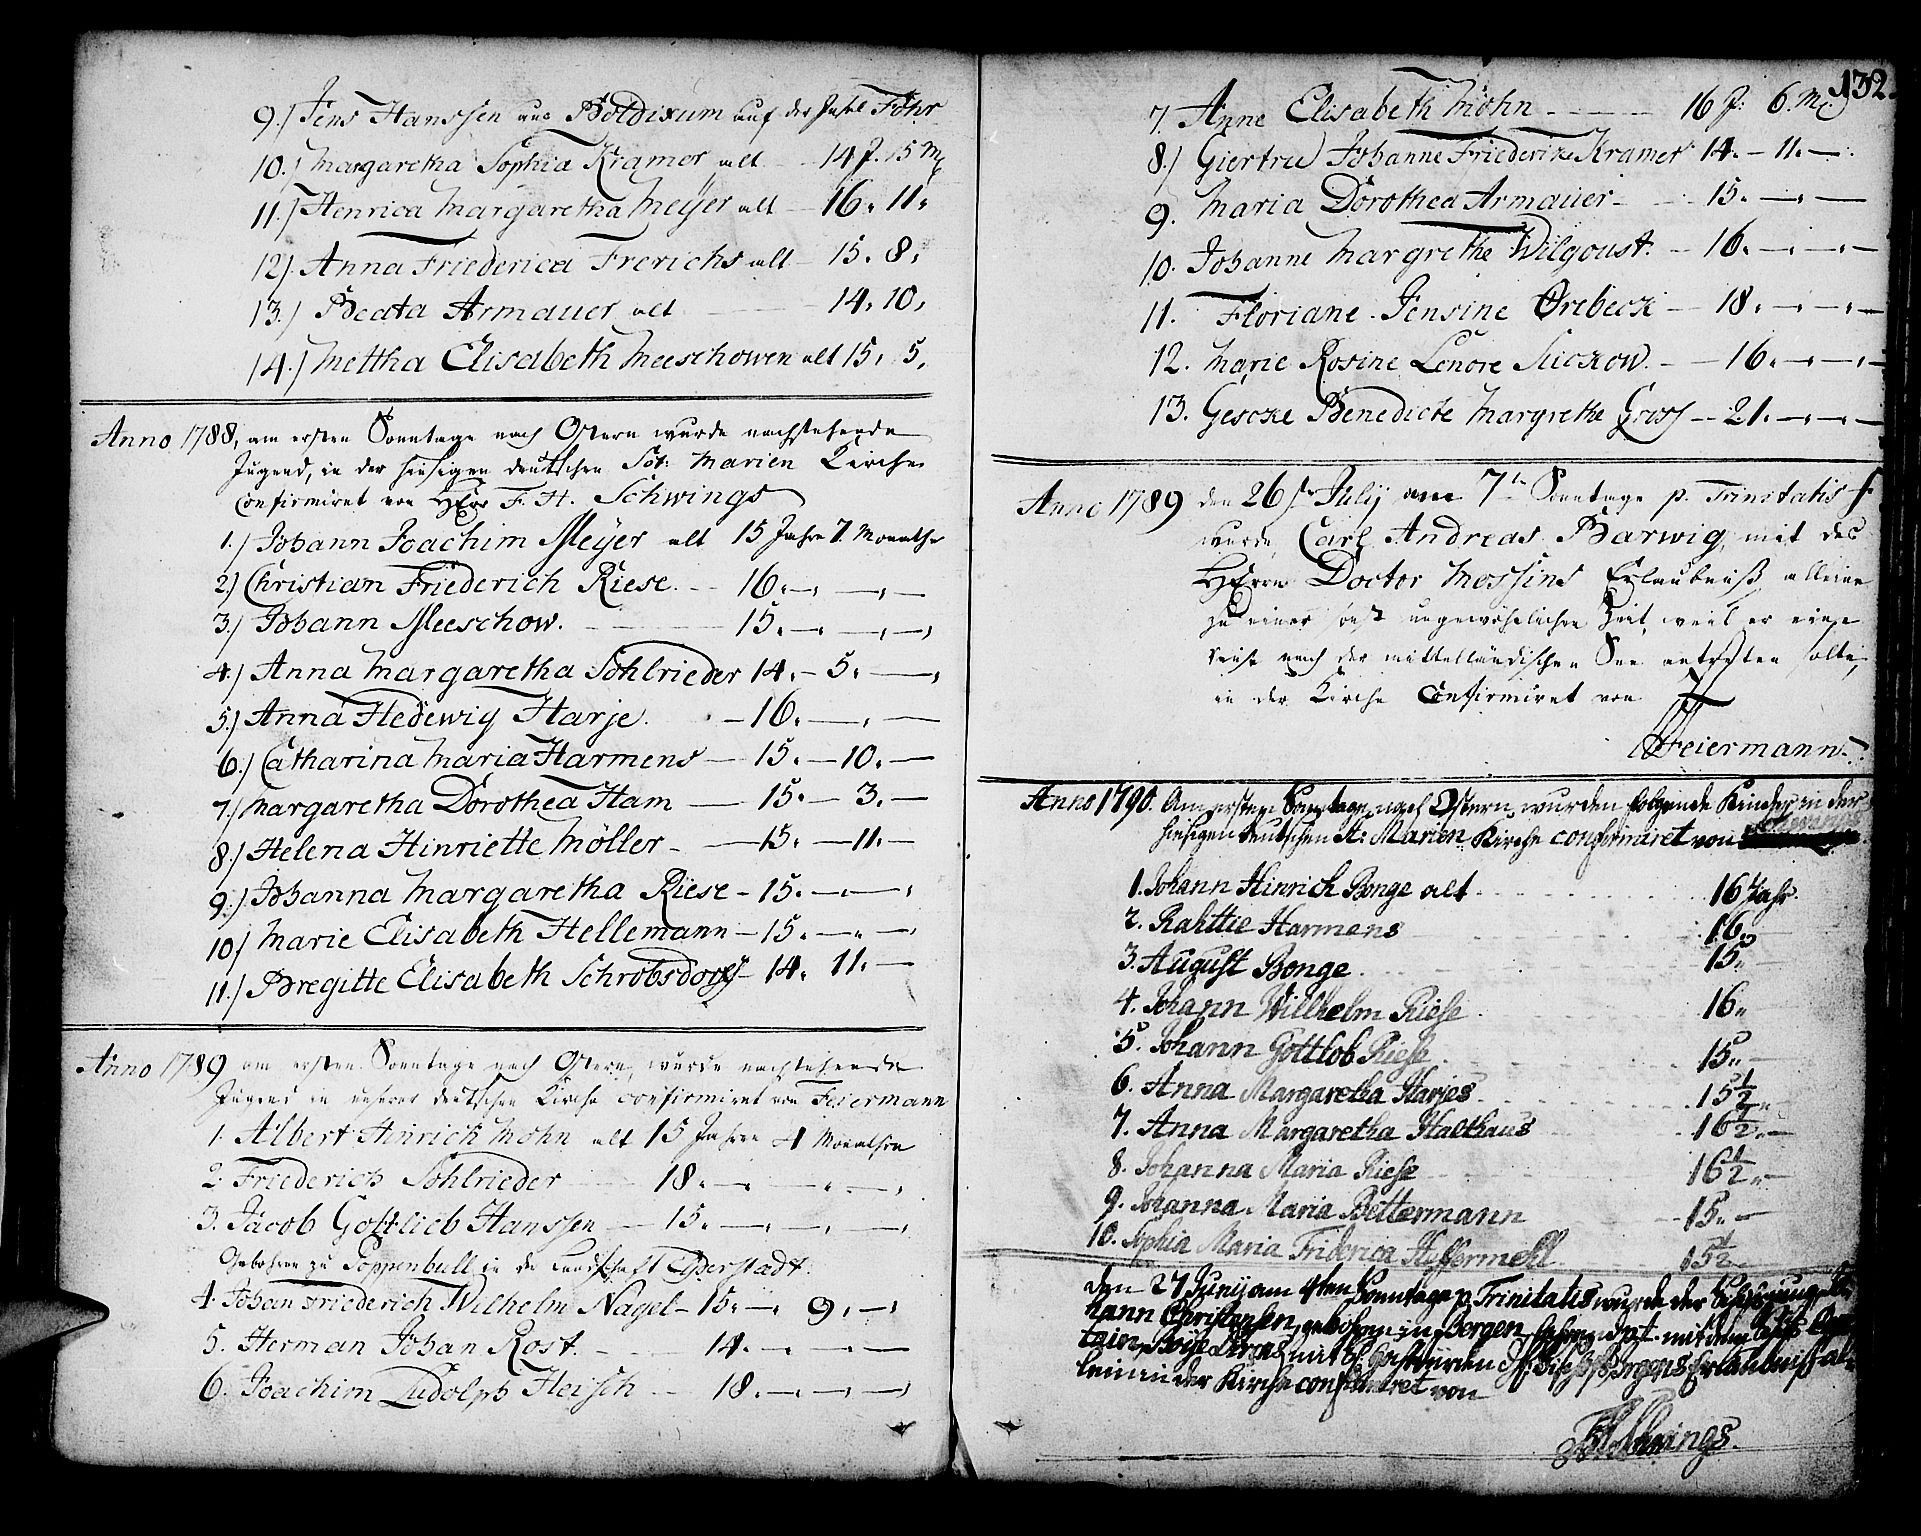 9.) Jens Hanssen aus Boldixum auf der Insel Föhr
10.) Margaretha Sophia Kramer alt 14 J. 5 M
11.) Henrica Margaretha Meÿer alt 16. 11.
12). Anna Friederica Frerichs alt 15. 8.
13.) Beata Armauer alt 14. 10.
14.) Mettha Elisabeth Meeschowen alt 15. 5.
Anno 1788, am ersten Sonntage nach Ostern wurde nachstehende
Jugend, in der hiesigen deutschen Sct: Marien Kirche
confirmiret von Herr F. H. Schwings
1.) Johann Joachim Meÿer alt 15 Jahre 7. Monathe
2.) Christian Friederich Riese. 16. — —
3.) Johann Meeschow. 15. — —
4.) Anna Margaretha Sohlrieder 14. — 5. —
5.) Anna Hedewig Harje. — 16. — —
6.) Catharina Maria Harmens — 15. — 10. —
7.) Margaretha Dorothea Ham — 15. — 3. —
8.) Helena Hinriette Möller — 15. — 11. —
9.) Johanna Margaretha Riese — 15. — —
10) Marie Elisabeth Hellemann — 15. — —
11.) Bregitte Elisabeth Schrobsdorff — 14. 11. —
Anno 1789 am ersten Sonntage nach Ostern, wurde nachstehende
Jugend in unserer deutschen Kirche confirmiret von Feiermann
1. Albert Hinrich Mohn alt 15 Jahre 4 Monathe
2. Friederich Sohlrieder 18. — —
3. Jacob Gottlieb Hanssen — 15. — —
Gebohren zu Poppenbull in der Landschaft Eyderstadt.
4. Johan Friederich Wilhelm Nagel — 15. — 9. —
5. Herman Johan Rost. 14. — —
6. Joachim Ludolph Heisch — 18. — —
132.
7. Anne Elisabeth Mohn — 16 J: 6. M.
8.) Giertrud Johanne Friederike Kramer 14. — 11. —
9. Maria Dorothea Armauer — 15. — —
10. Johanne Margrethe Wilgoust. — 16. — —
11. Floriane Jensine Ørebeck — 18. — —
12. Marie Rosine Lenore Suckow. — 16. — —
13. Gescke Benedicte Margrethe — 21. — —
Anno 1789 den 26 Julij am 7 Sonntage p. Trinitatis
wurde, Carl Andreas Barwig, mit des
Herrn Doctor Mossins Erlaubniß, alleine
zu einer sonst ungewöhnlichen Zeit, weil er eine
reise nach der mittelländischen See antreten solte,
in der Kirche Confirmiret von
Feiermann.
Anno 1790. Am ersten Sonntage nach Ostern, wurden folgende Kinder in der
hiesigen deutschen St: Marien Kirche confirmiret von Schwings
1. Johann Hinrich Bonge alt 16 Jahr.
2. Rahttie Harmens 16.
3. August Bonge. 15.
4. Johann Willhelm Riese 16.
5. Johann Gottlob Riese 15. —
6. Anna Margaretha Harjes 15 1/2 —
7. Anna Margaretha Halthaus 16 1/2 —
8. Johanna Maria Riese 16 1/2 —
9. Johanna Maria Bettermann — 15. —
10. Sophia Maria Friderica 15 1/2
den 27 Junij am 4ten Sonntage p. Trinitatis wurde der
Christensen, gebohren in Bergen, mit dem
mit Erlaubniß al-
lein in der Kirche confirmiret von
FHSchwings.